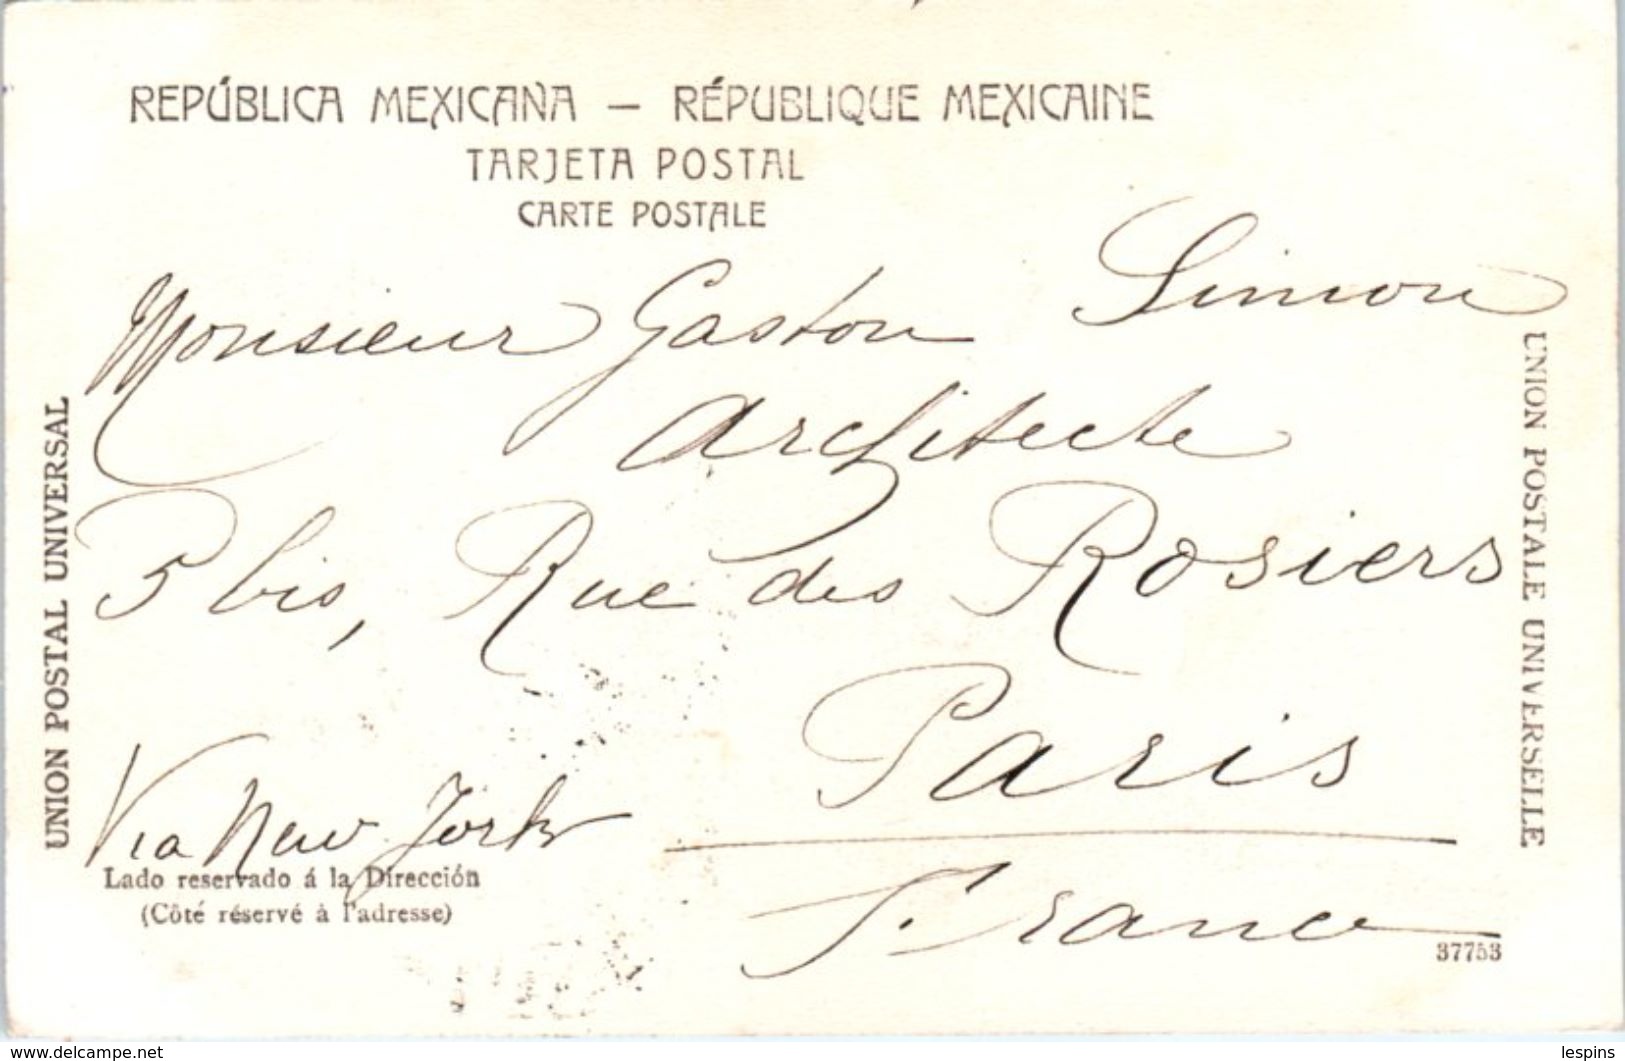 REPÚBLICA MEXICANA — RÉPUBLIQUE MEXICAINE
TARJETA POSTAL
CARTE POSTALE
Monsieur Gaston Simon
Architecte
5 bis, Rue des Rosiers
Paris
France
Via New York
Lado reservado á la Dirección
(Côté réservé à l'adresse)
UNION POSTAL UNIVERSAL
UNION POSTALE UNIVERSELLE
37753
www.delcampe.net
lespins